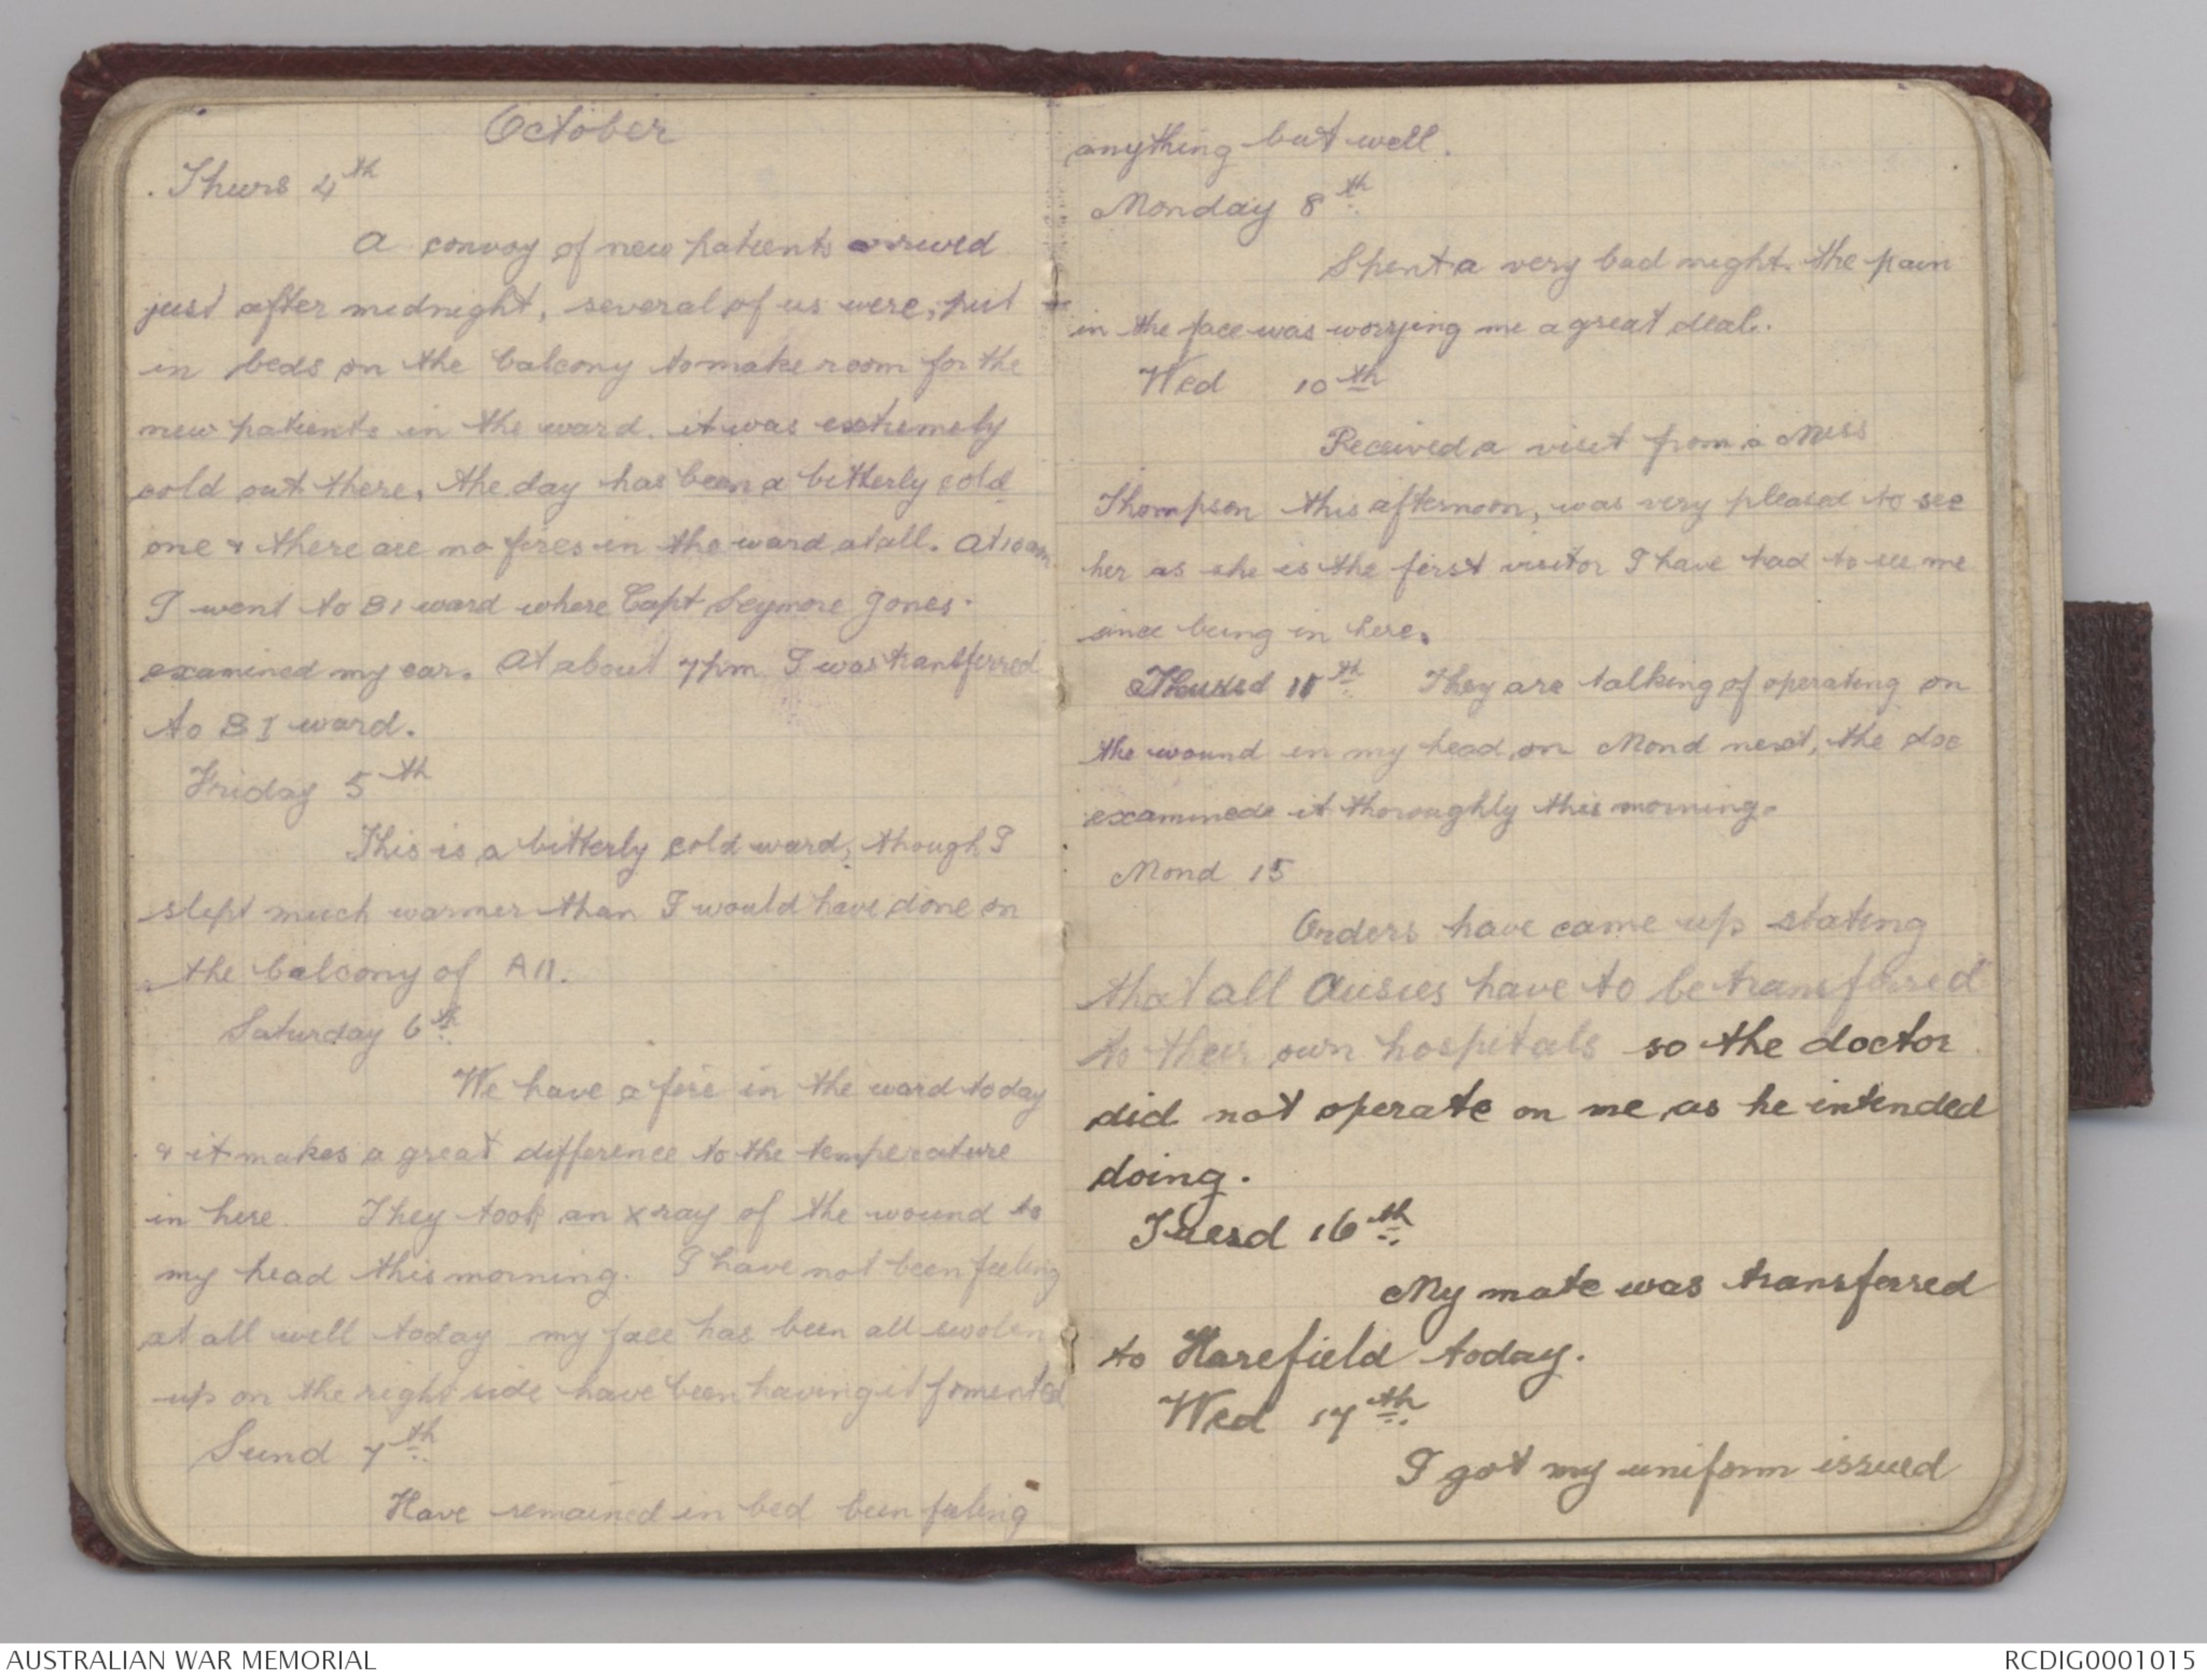 October
. Thurs 4th
A convoy of new patients arrived
just after midnight, several of us were, put
in beds on the balcony to make room for the
new patients in the ward. it was extremely
cold out there, the day has been a bitterly cold
one & there are no fires in the ward at all. At 10 am
I went to B1 ward where Capt Seymore Jones.
examined my ear. At about 7pm I was transferred
to B1 ward.
Friday 5th
This is a bitterly cold ward, though I
slept much warmer than I would have done on
the balcony of A11.
Saturday 6th
We have a fire in the ward today
& it makes a great difference to the temperature
in here. They took an x ray of the wound to
my head this morning. I have not been feeling
at all well today my face has been all swolen
up on the right side have been having it fomented
Sund 7th
Have remained in bed been feeling
anything but well.
Monday 8th
Spent a very bad night. the pain
in the face was worrying me a great deal.
Wed 10th
Received a visit from a Miss
Thompson this afternoon, was very pleased to see
her as she is the first visitor I have had to see me
since being in here.
Thursd 11th They are talking of operating on
the wound in my head on Mond next, the doc
examined it thoroughly this morning.
Mond 15
Orders have came up stating
that all Ausies have to be transferred
to their own hospitals so the doctor
did not operate on me as he intended
doing.
Tuesd 16th
My mate was transferred
to Harefield today.
Wed 17th
I got my uniform issued
AUSTRALIAN WAR MEMORIAL
RCDIG0001015